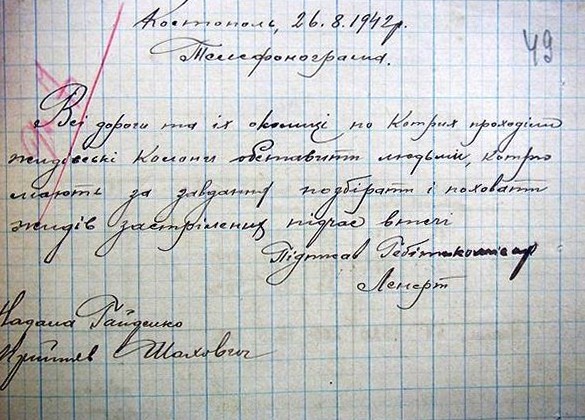 Костопель, 26.8.1942р.
49
Телефонограма.
Всі дороги та їх околиці по котрих проходили
жидівські колони обставити людьми, котрі
мають за завдання подбірати і поховати
жидів застрілених підчас втечі
Підписав Гебітскомісар
Ленерт
Надала Гайденко
Прийняв Шахович